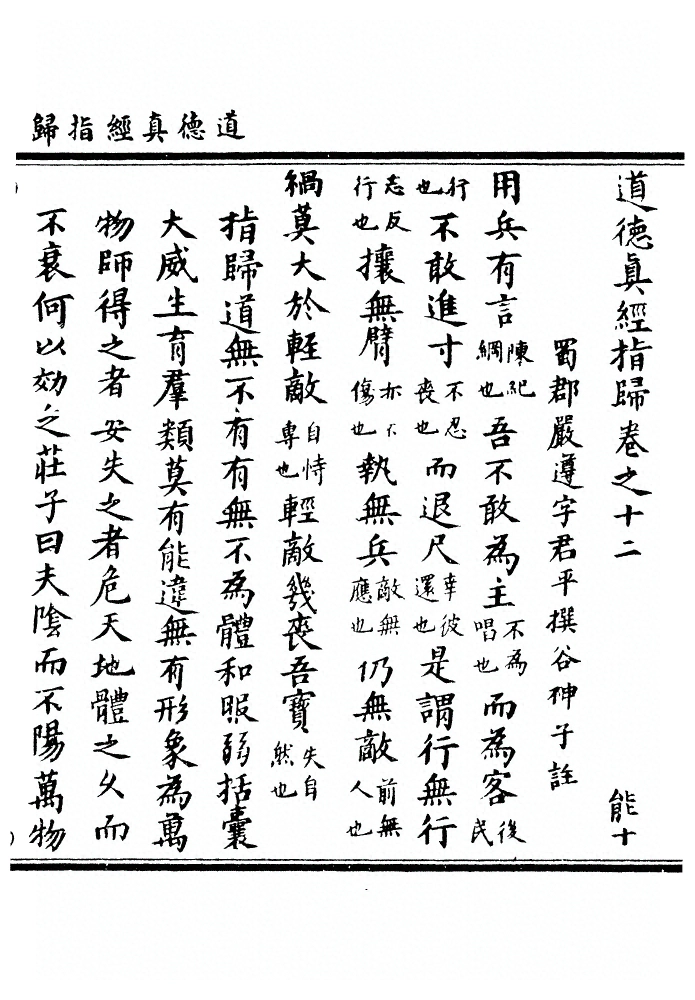 道德真經指歸
道德眞經指歸卷之十二 能十
蜀郡嚴遵字君平撰谷神子註
用兵有言陳紀綱也吾不敢為主不為唱也而為客後民
行也不敢進寸不忍喪也而退尺幸彼還也是謂行無行
志反行也攘無臂亦不傷也執無兵敵無應也仍無敵前無人也
禍莫大於輕敵自恃專也輕敵幾喪吾寳失自然也
指歸道無不有有無不為體和服弱括囊
大威生育羣類莫有能違無有形象為萬
物師得之者安失之者危天地體之久而
不衰何以効之莊子曰夫陰而不陽萬物